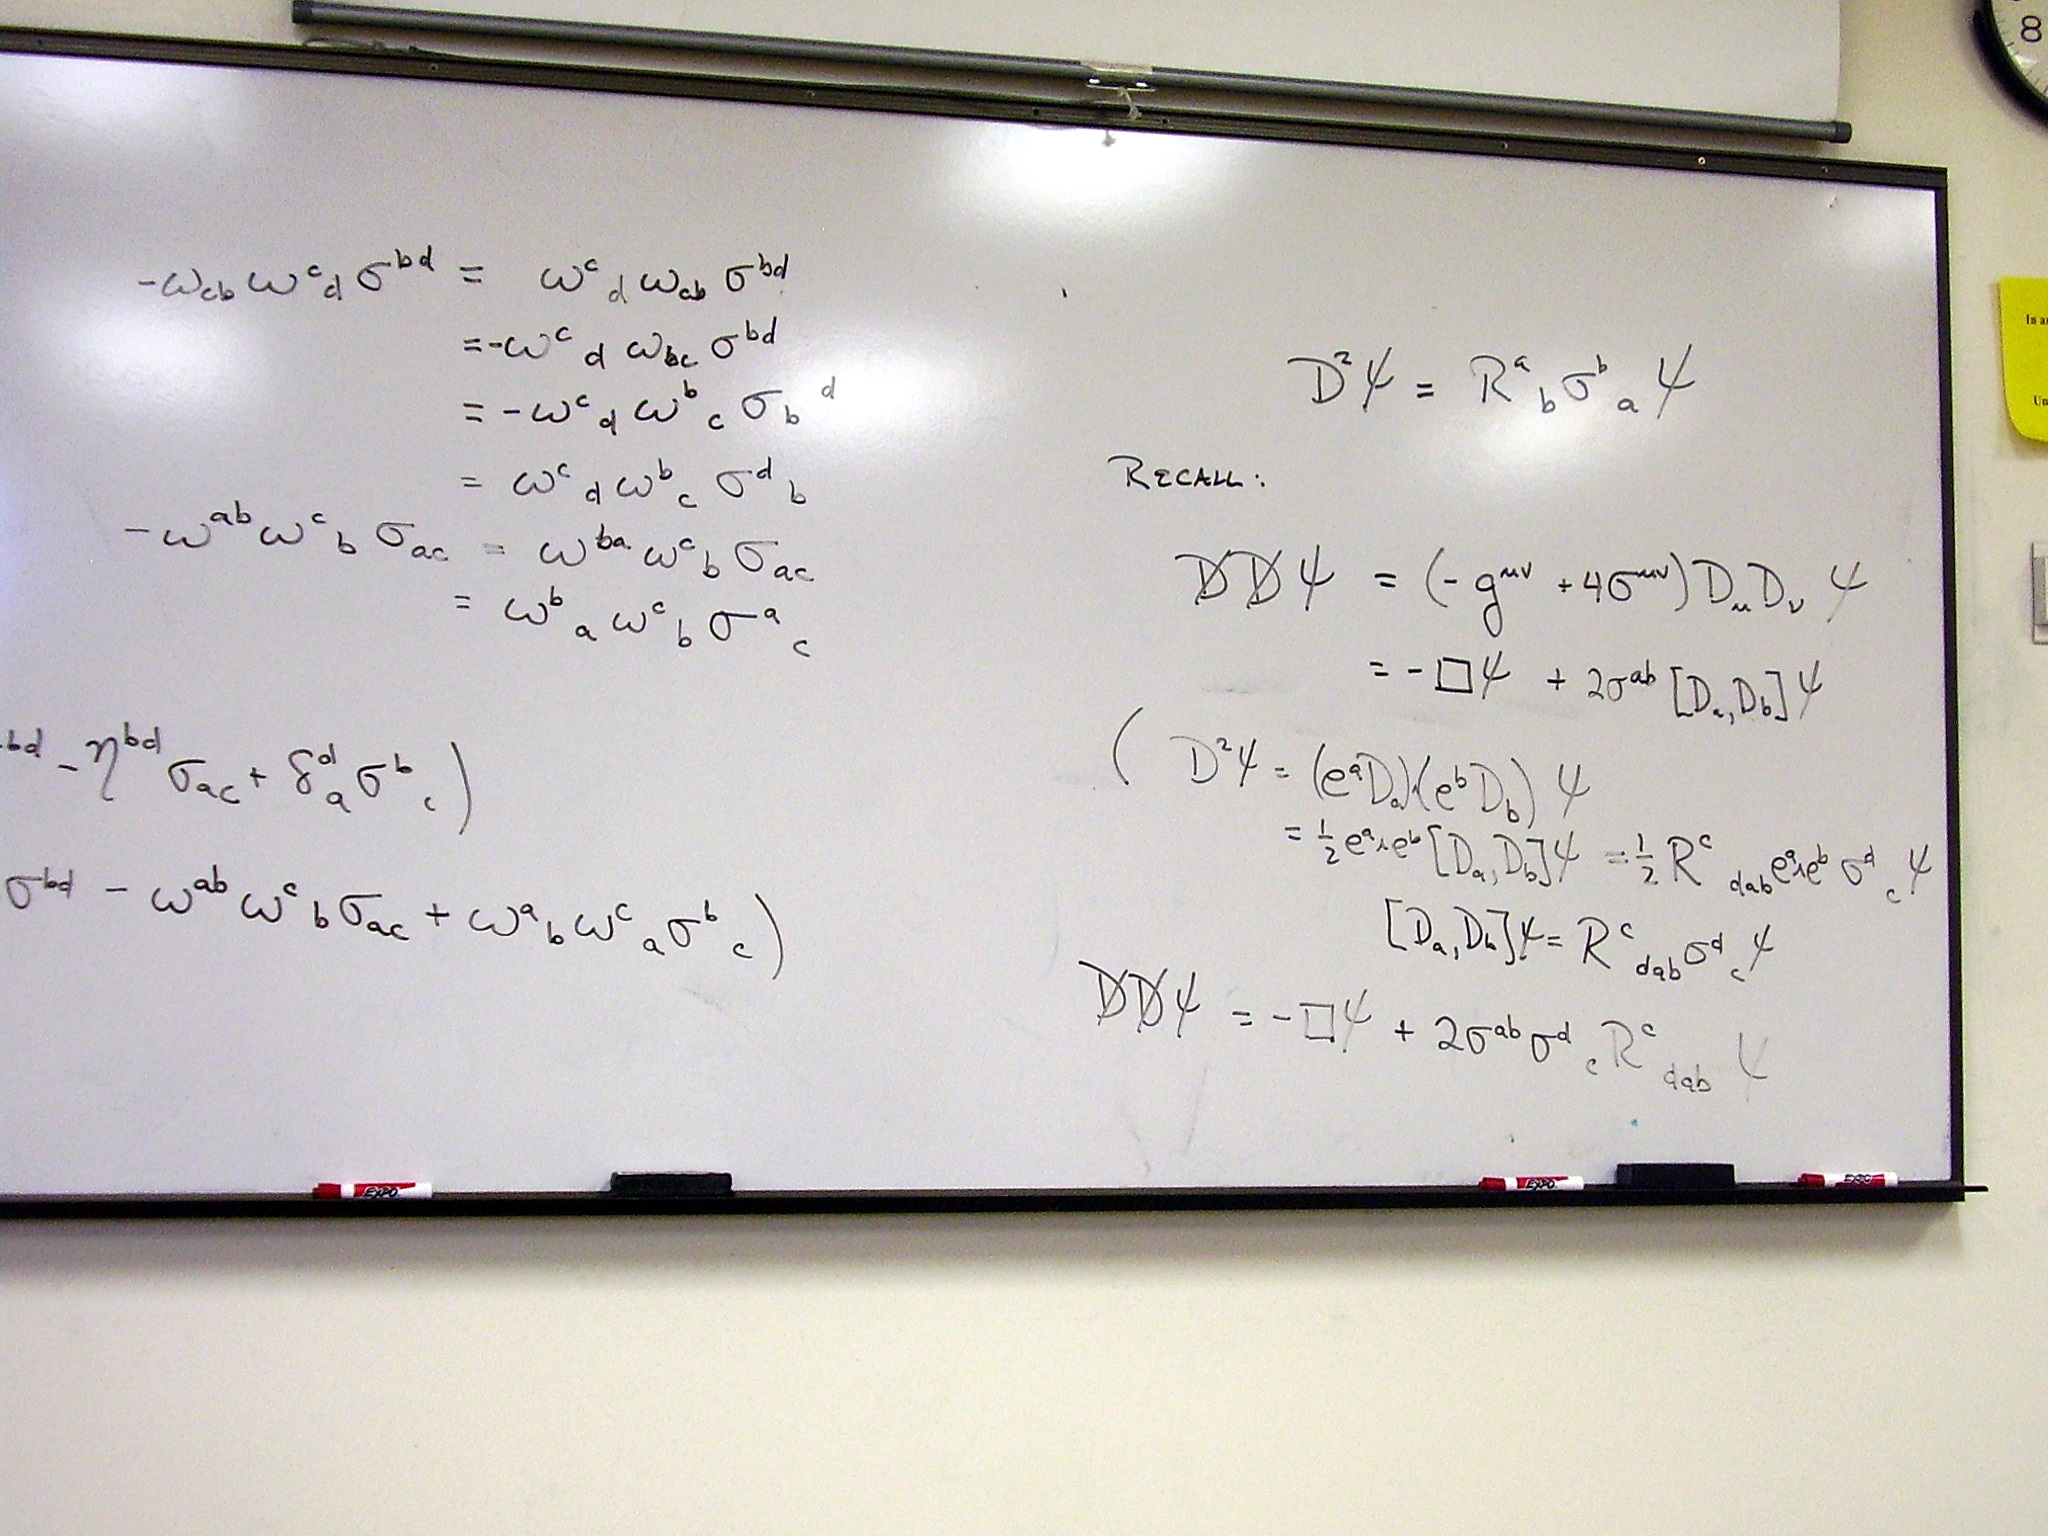 -ω_{cb} ω^c_d σ^{bd} = ω^c_d ω_{cb} σ^{bd}
= -ω^c_d ω_{bc} σ^{bd}
= -ω^c_d ω^b_c σ_b^d
= ω^c_d ω^b_c σ^d_b
-ω^{ab} ω^c_b σ_{ac} = ω^{ba} ω^c_b σ_{ac}
= ω^b_a ω^c_b σ^a_c
^{bd} - η^{bd} σ_{ac} + δ^d_a σ^b_c )
σ^{bd} - ω^{ab} ω^c_b σ_{ac} + ω^a_b ω^c_a σ^b_c )
D²ψ = R^a_b σ^b_a ψ
RECALL:
D̸D̸ψ = (-g^{μν} + 4σ^{μν}) D_μ D_ν ψ
= -□ψ + 2σ^{ab} [D_a, D_b] ψ
( D²ψ = (e^a D_a)∧(e^b D_b) ψ
= ½ e^a∧e^b [D_a, D_b] ψ = ½ R^c_{dab} e^a∧e^b σ^d_c ψ
[D_a, D_b] ψ = R^c_{dab} σ^d_c ψ
D̸D̸ψ = -□ψ + 2σ^{ab} σ^d_c R^c_{dab} ψ
EXPO
EXPO
EXPO
8
In
Un